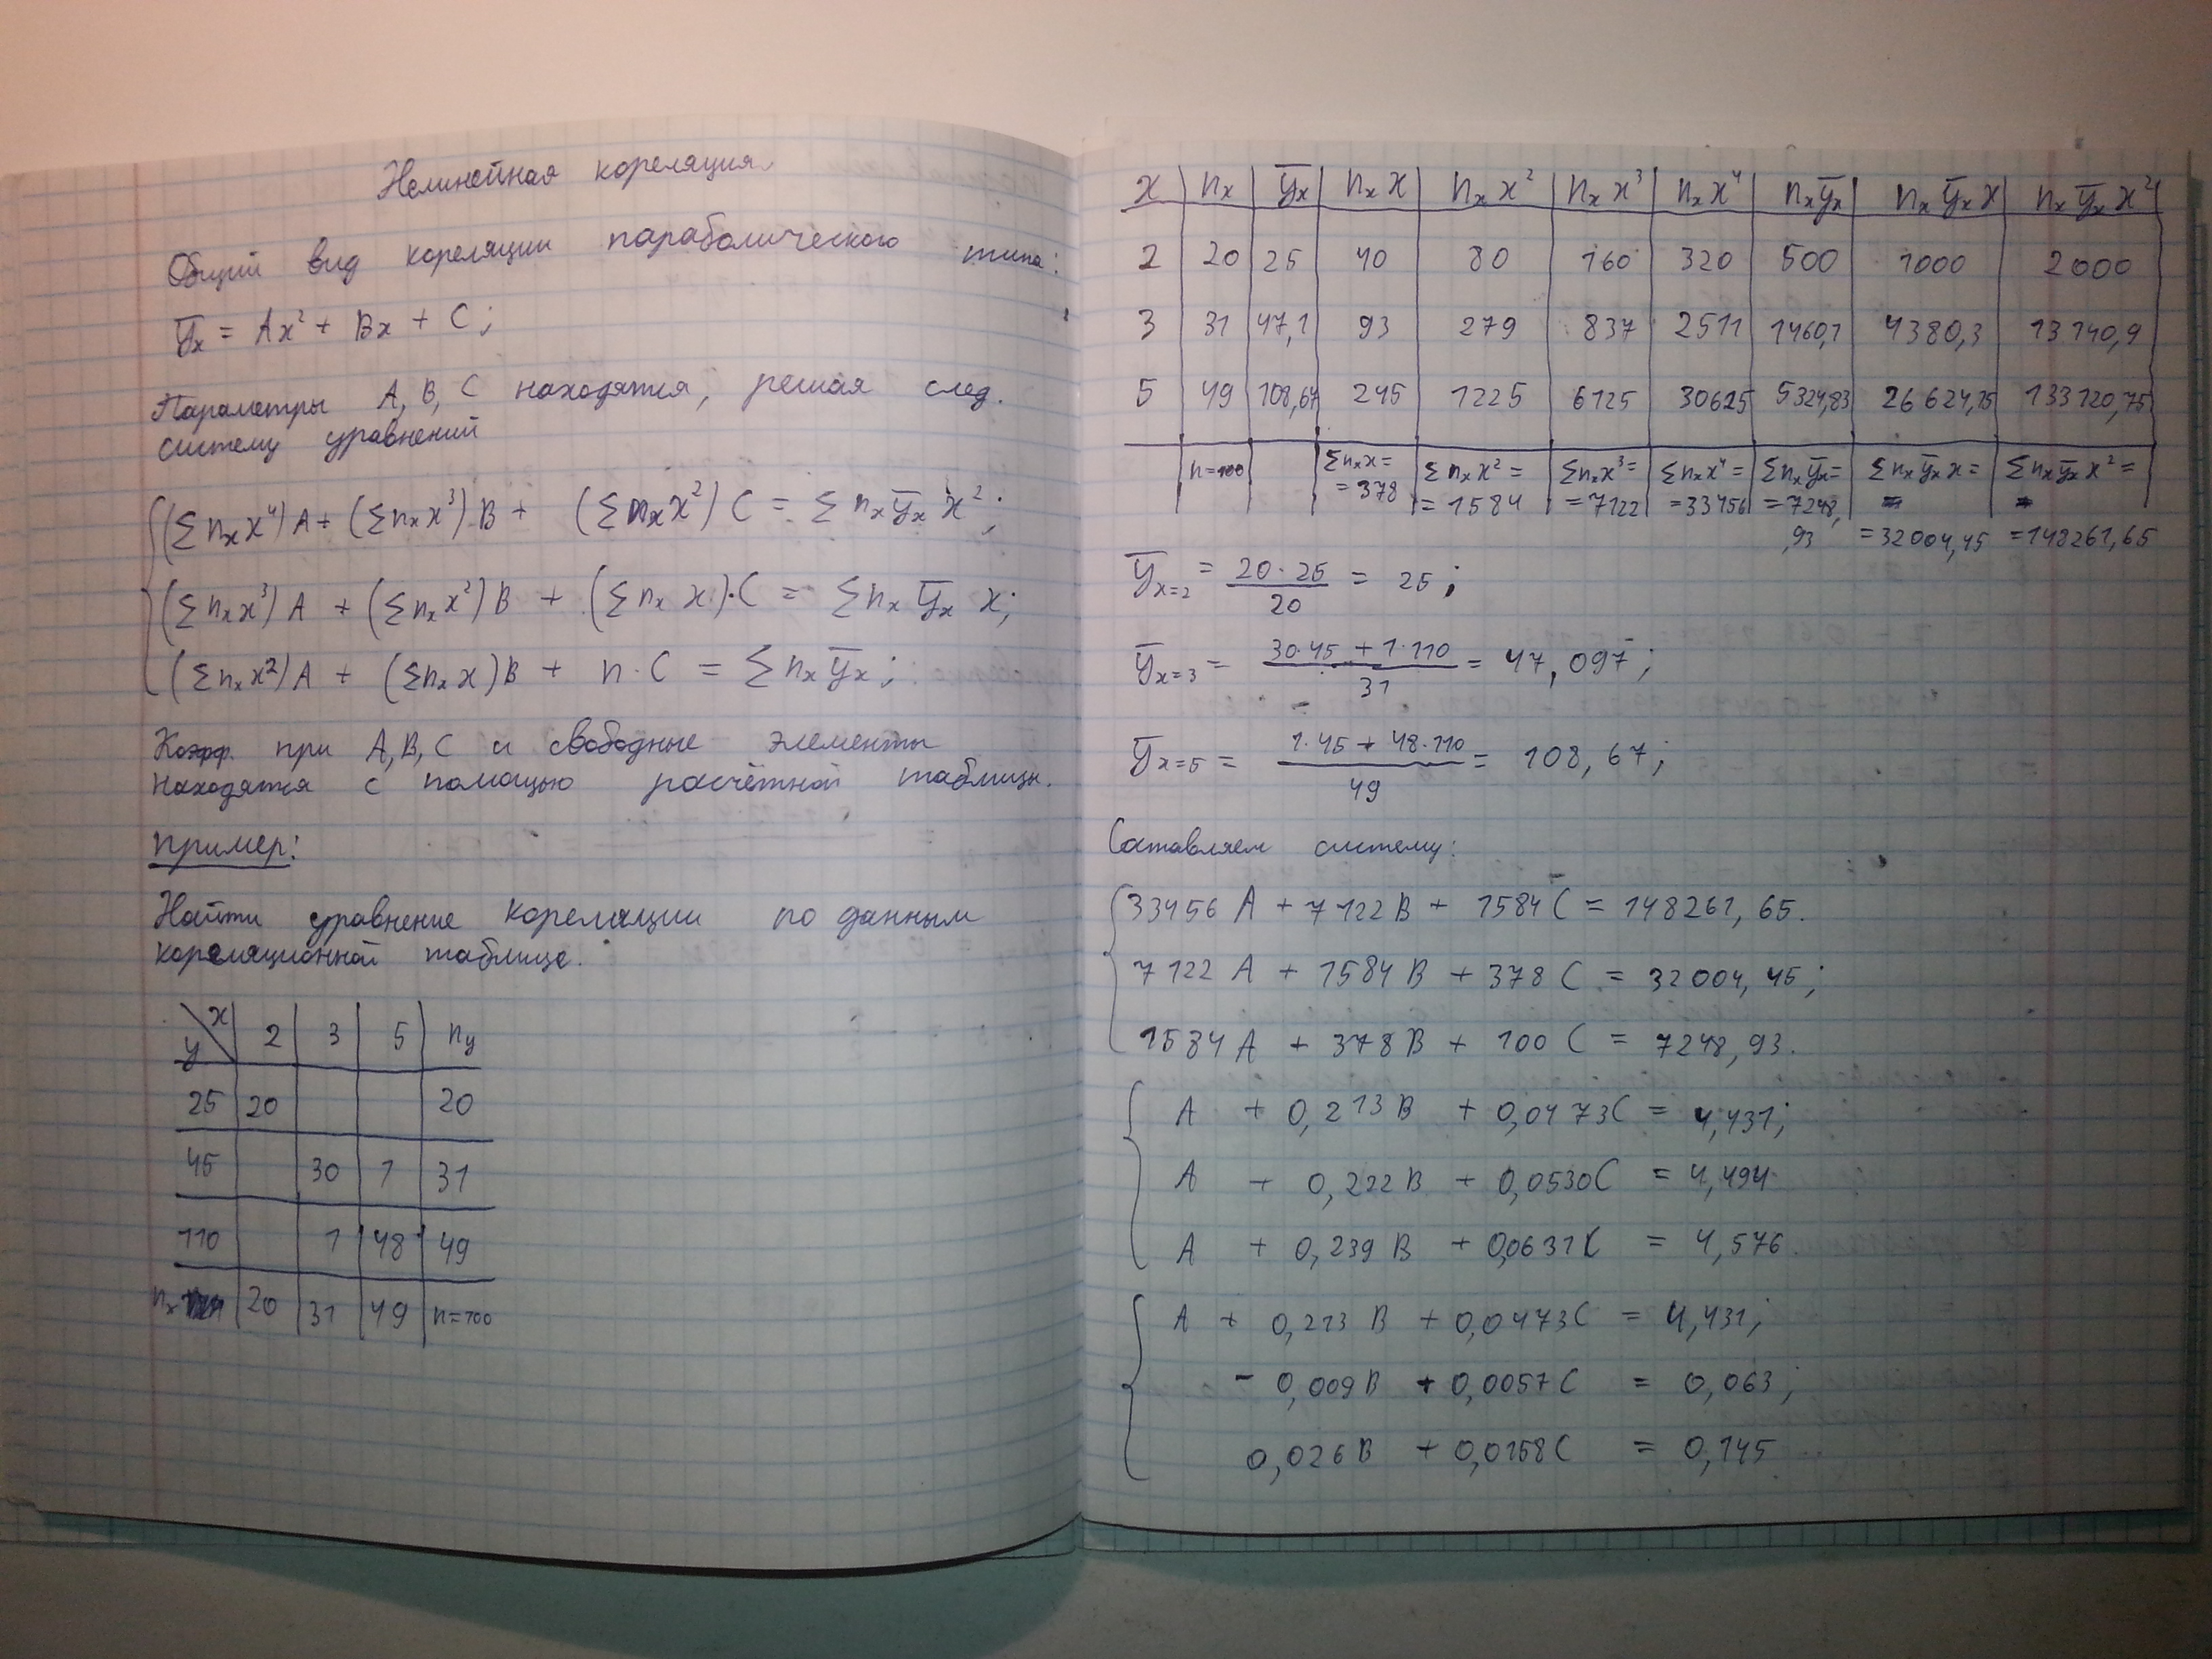 Нелинейная кореляция.
Общий вид кореляции параболического типа:
y̅ₓ = Ax² + Bx + C;
Параметры A, B, C находятся, решая след.
систему уравнений
(Σnₓx⁴)A + (Σnₓx³)B + (Σnₓx²)C = Σnₓy̅ₓx²;
(Σnₓx³)A + (Σnₓx²)B + (Σnₓx)·C = Σnₓy̅ₓx;
(Σnₓx²)A + (Σnₓx)B + n·C = Σnₓy̅ₓ;
Коэфф. при A, B, C и свободные элементы
находятся с помощью расчётной таблицы.
Пример:
Найти уравнение кореляции по данным
кореляционной таблице.
y\x | 2 | 3 | 5 | n_y
25 | 20 | | | 20
45 | | 30 | 1 | 31
110 | | 1 | 48 | 49
nₓ | 20 | 31 | 49 | n=100
x | nₓ | y̅ₓ | nₓx | nₓx² | nₓx³ | nₓx⁴ | nₓy̅ₓ | nₓy̅ₓx | nₓy̅ₓx²
2 | 20 | 25 | 40 | 80 | 160 | 320 | 500 | 1000 | 2000
3 | 31 | 47,1 | 93 | 279 | 837 | 2511 | 1460,1 | 4380,3 | 13140,9
5 | 49 | 108,67 | 245 | 1225 | 6125 | 30625 | 5324,83 | 26624,15 | 133120,75
| n=100 | | Σnₓx= =378 | Σnₓx²= =1584 | Σnₓx³= =7122 | Σnₓx⁴= =33456 | Σnₓy̅ₓ= =7248,,93 | Σnₓy̅ₓx= =32004,45 | Σnₓy̅ₓx²= =148261,65
y̅ₓ₌₂ = 20·25/20 = 25;
y̅ₓ₌₃ = (30·45 + 1·110)/31 = 47,097;
y̅ₓ₌₅ = (1·45 + 48·110)/49 = 108,67;
Составляем систему:
33456A + 7122B + 1584C = 148261,65.
7122A + 1584B + 378C = 32004,45;
1584A + 378B + 100C = 7248,93.
A + 0,213B + 0,0473C = 4,431;
A + 0,222B + 0,0530C = 4,494
A + 0,239B + 0,0631C = 4,576.
A + 0,213B + 0,0473C = 4,431;
- 0,009B + 0,0057C = 0,063;
0,026B + 0,0158C = 0,145